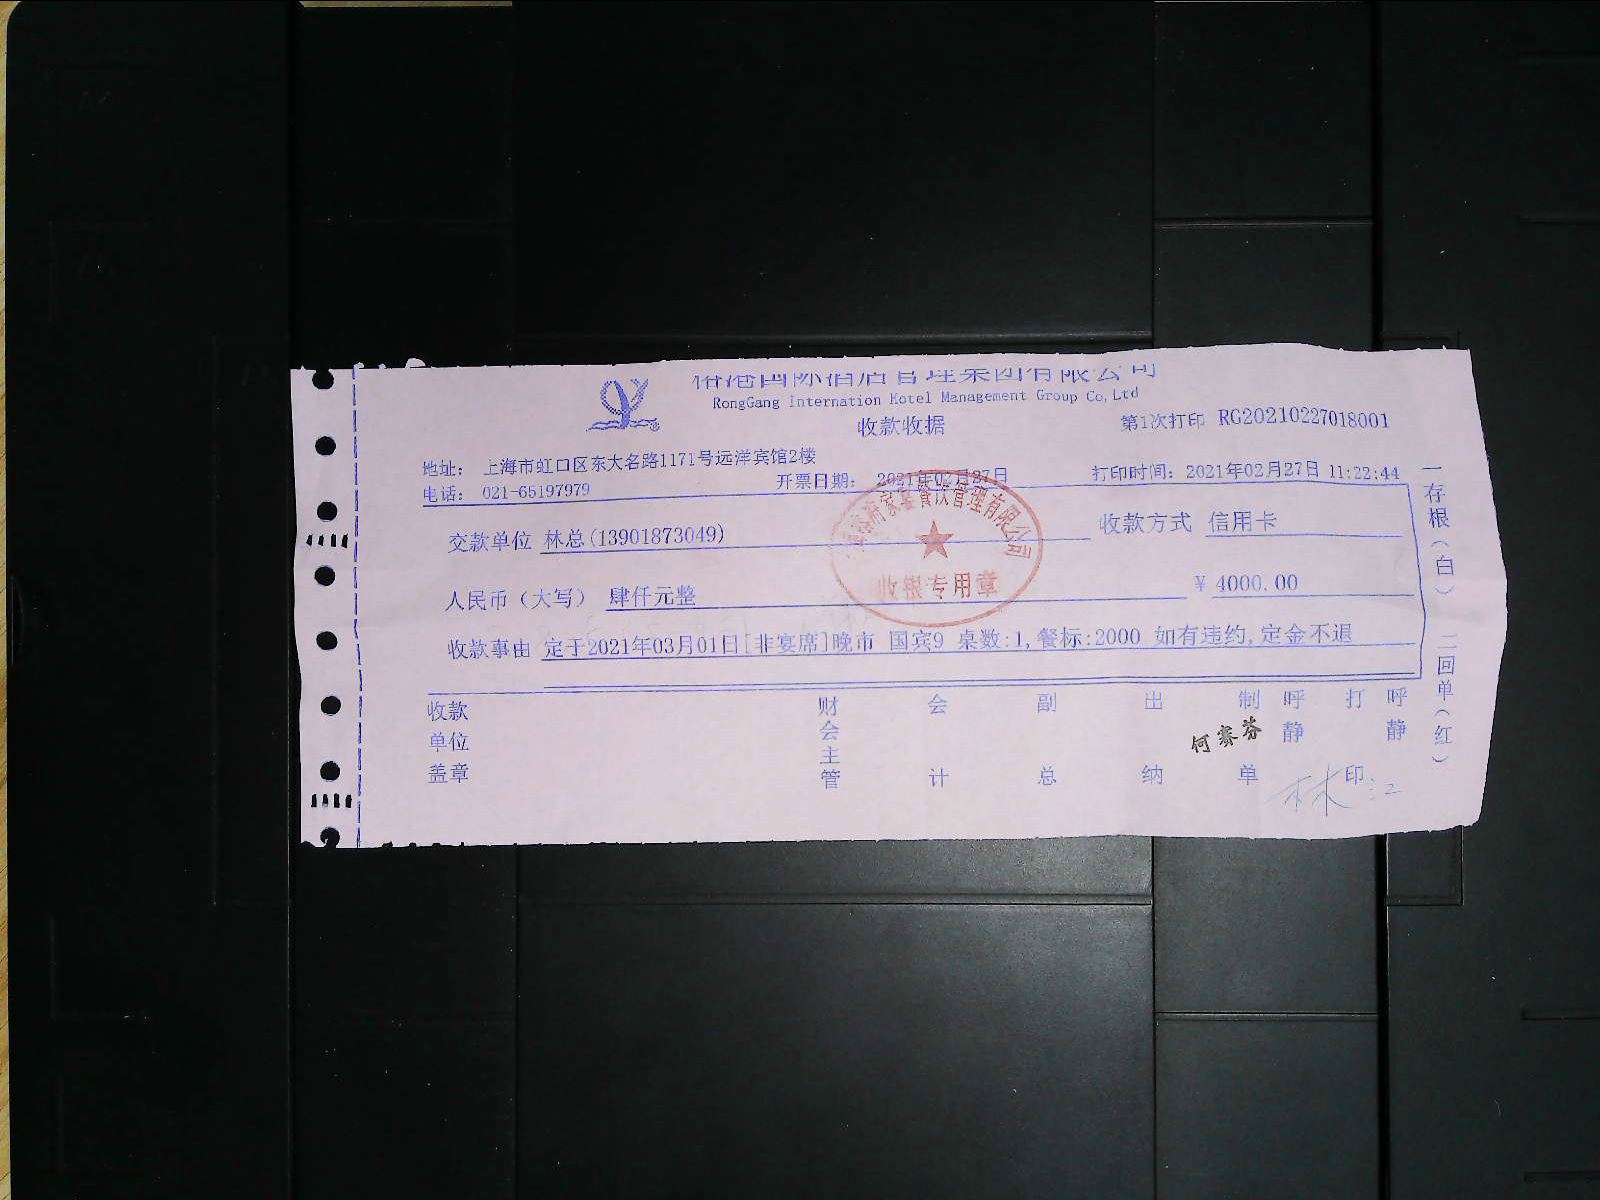 国际酒店管理集团有限公司
RongGang Internation Hotel Management Group Co,Ltd
收款收据
第1次打印 RG20210227018001
地址: 上海市虹口区东大名路1171号远洋宾馆2楼
电话: 021-65197979
开票日期: 2021年02月27日
打印时间: 2021年02月27日 11:22:44
交款单位 林总(13901873049)
收款方式 信用卡
人民币(大写) 肆仟元整
¥ 4000.00
收款事由 定于2021年03月01日[非宴席]晚市 国宾9 桌数:1,餐标:2000 如有违约,定金不退
收款单位盖章
财会主管
会计
副总
出纳
制单
呼静
打印:
呼静
何赛芬
林
一存根(白) 二回单(红)
家宴餐饮管理有限公司
收银专用章